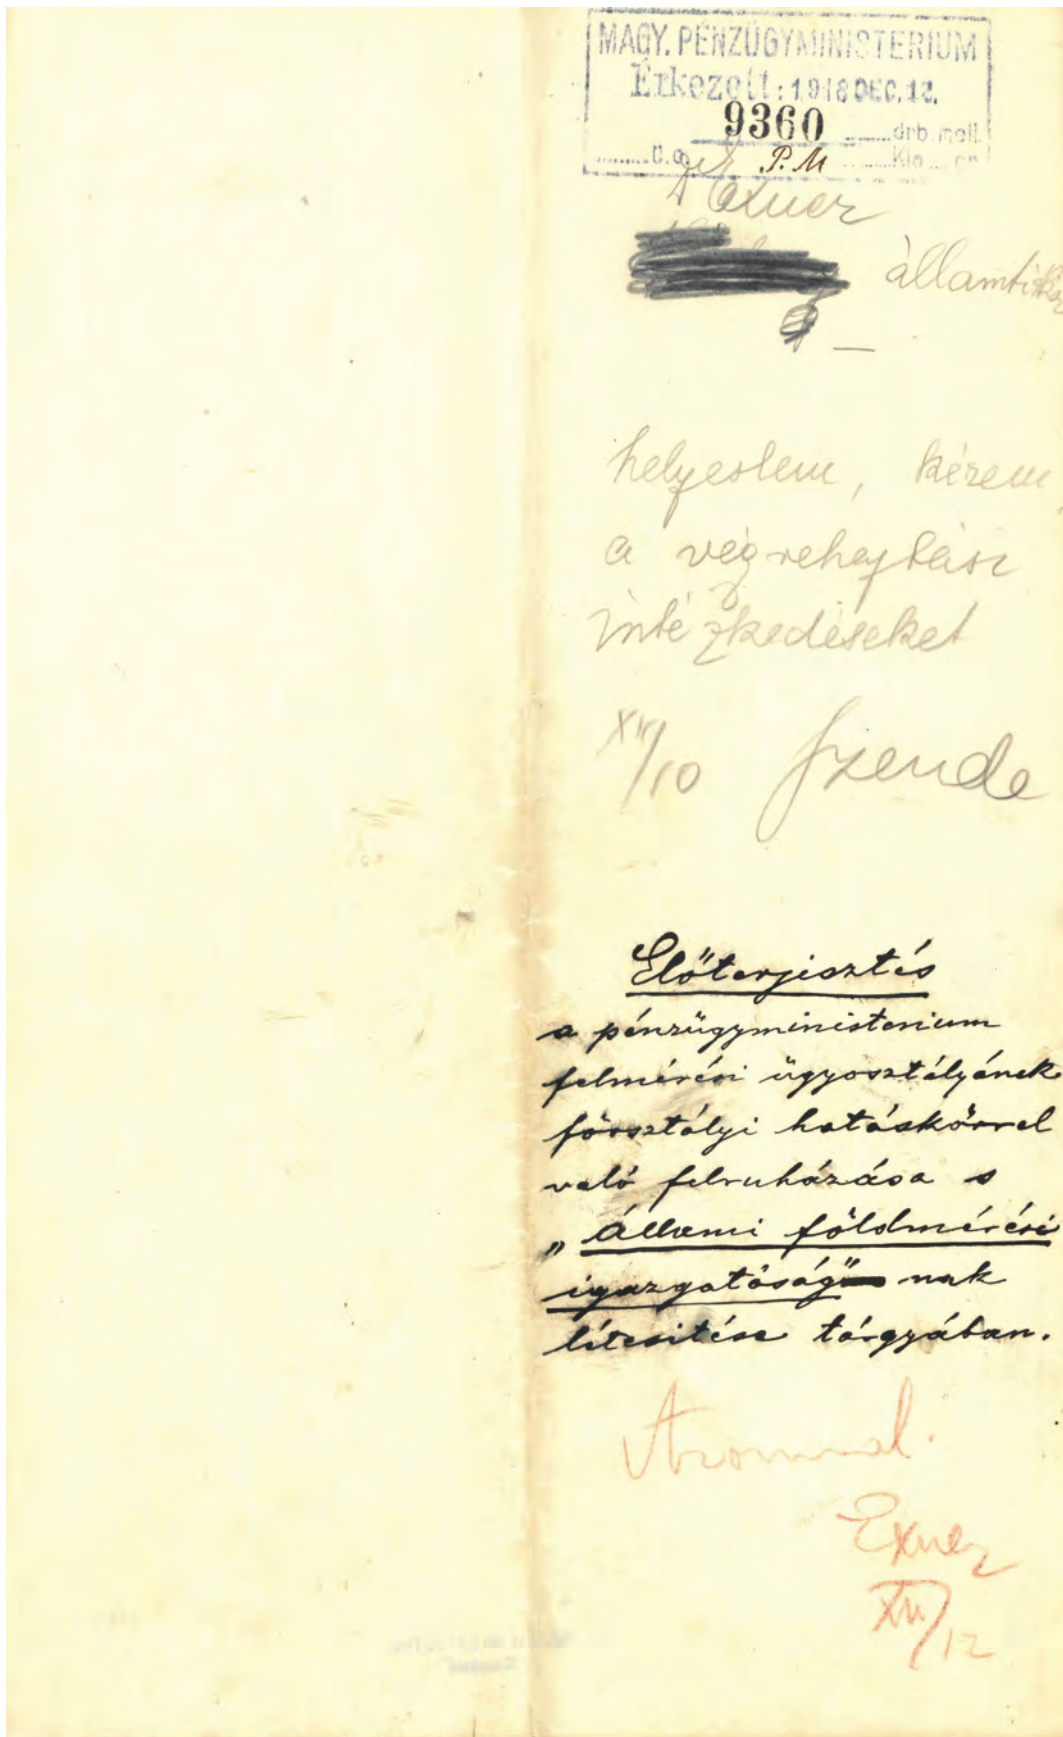 MAGY. PÉNZÜGYMINISTERIUM
Érkezett: 1918 DEC. 12.
9360 drb. mell.
P. M
Exner
államtitkár
helyeslem, kérem
a végrehajtási
intézkedéseket
XII/10 Szende
Előterjesztés
a pénzügyministerium
felmérési ügyosztályának
főosztályi hatáskörrel
való felruházása s
„Állami földmérési
igazgatóság"nak
létesitése tárgyában.
Azonnal.
Exner
XII/12